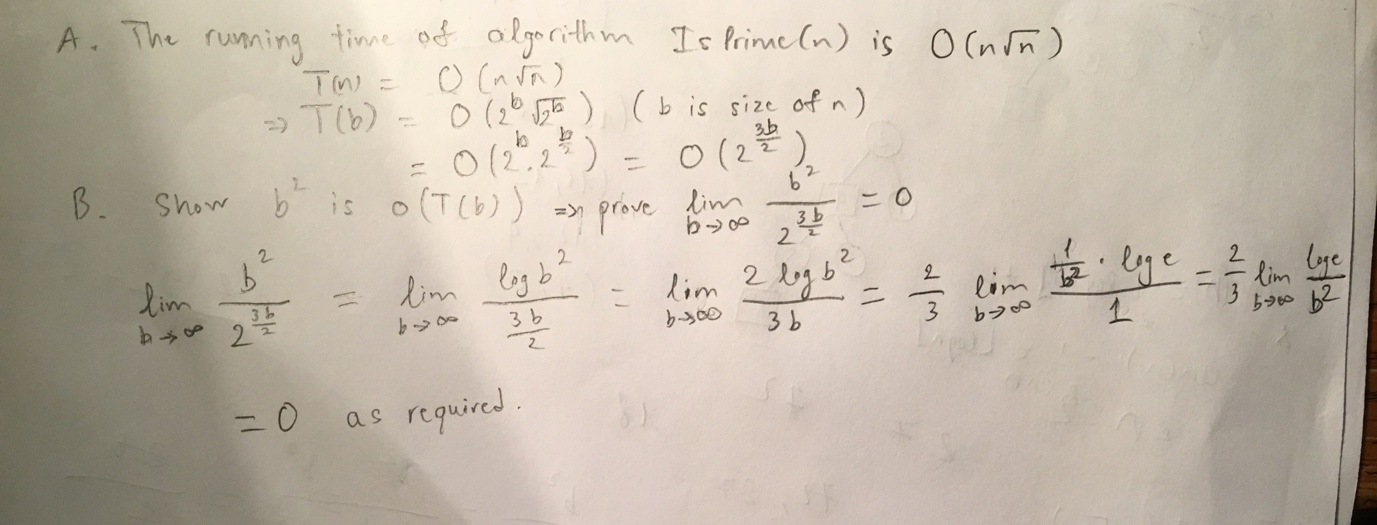 A. The running time of algorithm IsPrime(n) is O(n√n)
T(n) = O(n√n)
⇒ T(b) = O(2^b √2^b) (b is size of n)
= O(2^b . 2^(b/2)) = O(2^(3b/2))
B. Show b^2 is o(T(b)) ⇒ prove lim b→∞ b^2 / 2^(3b/2) = 0
lim b→∞ b^2 / 2^(3b/2) = lim b→∞ log b^2 / (3b/2) = lim b→∞ 2 log b^2 / 3b = 2/3 lim b→∞ (1/b^2 · log e) / 1 = 2/3 lim b→∞ log e / b^2
= 0 as required.